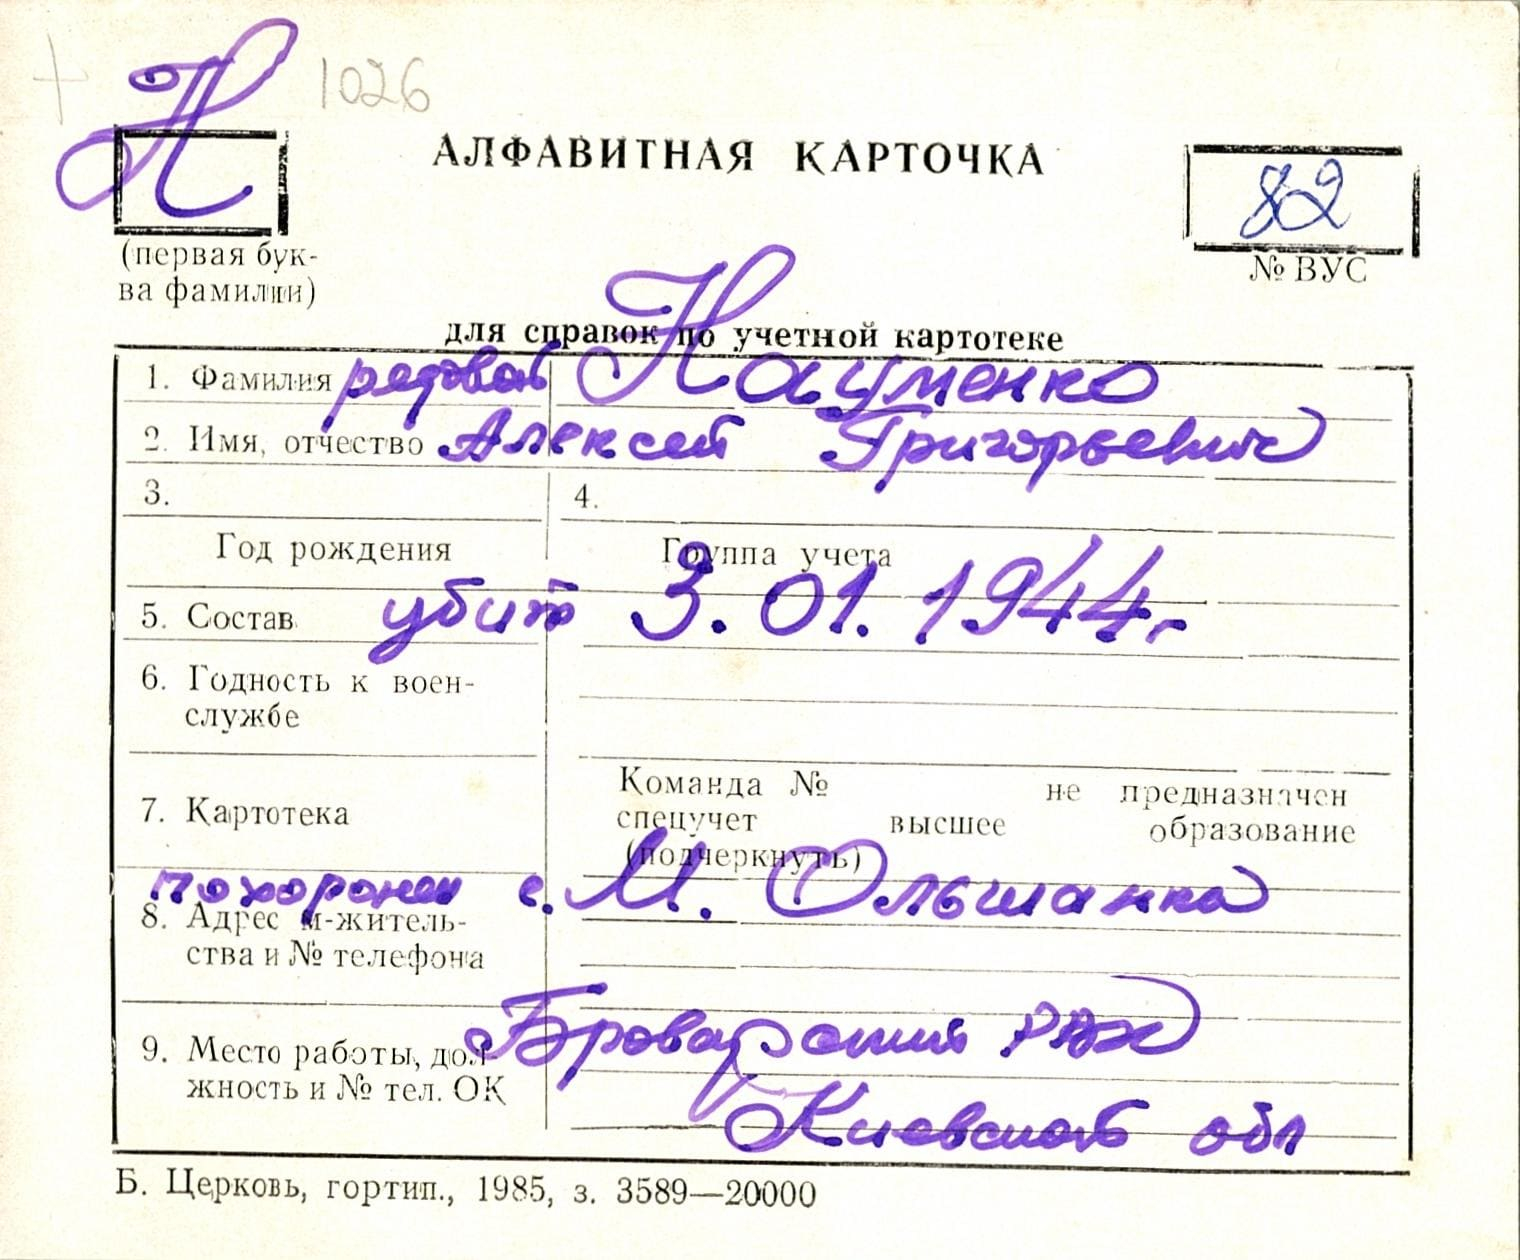 Н 1026
АЛФАВИТНАЯ КАРТОЧКА
82
(первая бук-
ва фамилии)
№ ВУС
для справок по учетной картотеке
1. Фамилия рядовой Науменко
2. Имя, отчество Алексей Григорьевич
3. 4.
Год рождения Группа учета
5. Состав убит 3.01.1944г
6. Годность к воен-
службе
Команда № не предназначен
7. Картотека спецучет высшее образование
(подчеркнуть)
похоронен с. М. Ольшанка
8. Адрес м-житель-
ства и № телефона
Броварский
9. Место работы, дол-
жность и № тел. ОК
Киевской обл
Б. Церковь, гортип., 1985, з. 3589—20000